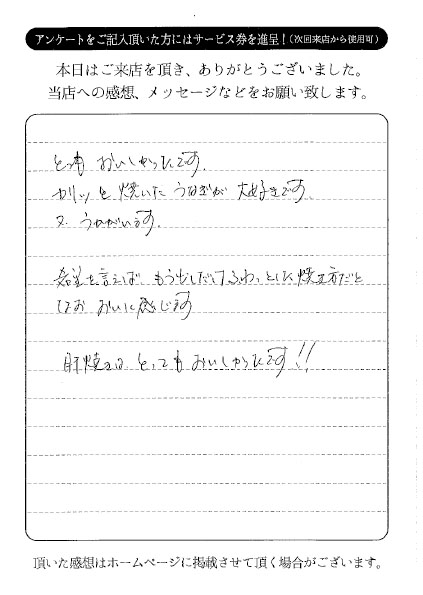 アンケートをご記入頂いた方にはサービス券を進呈!(次回来店から使用可)
本日はご来店を頂き、ありがとうございました。
当店への感想、メッセージなどをお願い致します。
とっても おいしかったです.
カリッと焼いた うなぎが 大好きです.
又 うかがいます.
希望を言えば もう少しだけふわっとした焼き方だと
なお おいに感じます
肝焼きは とっても おいしかったです!!
頂いた感想はホームページに掲載させて頂く場合がございます。